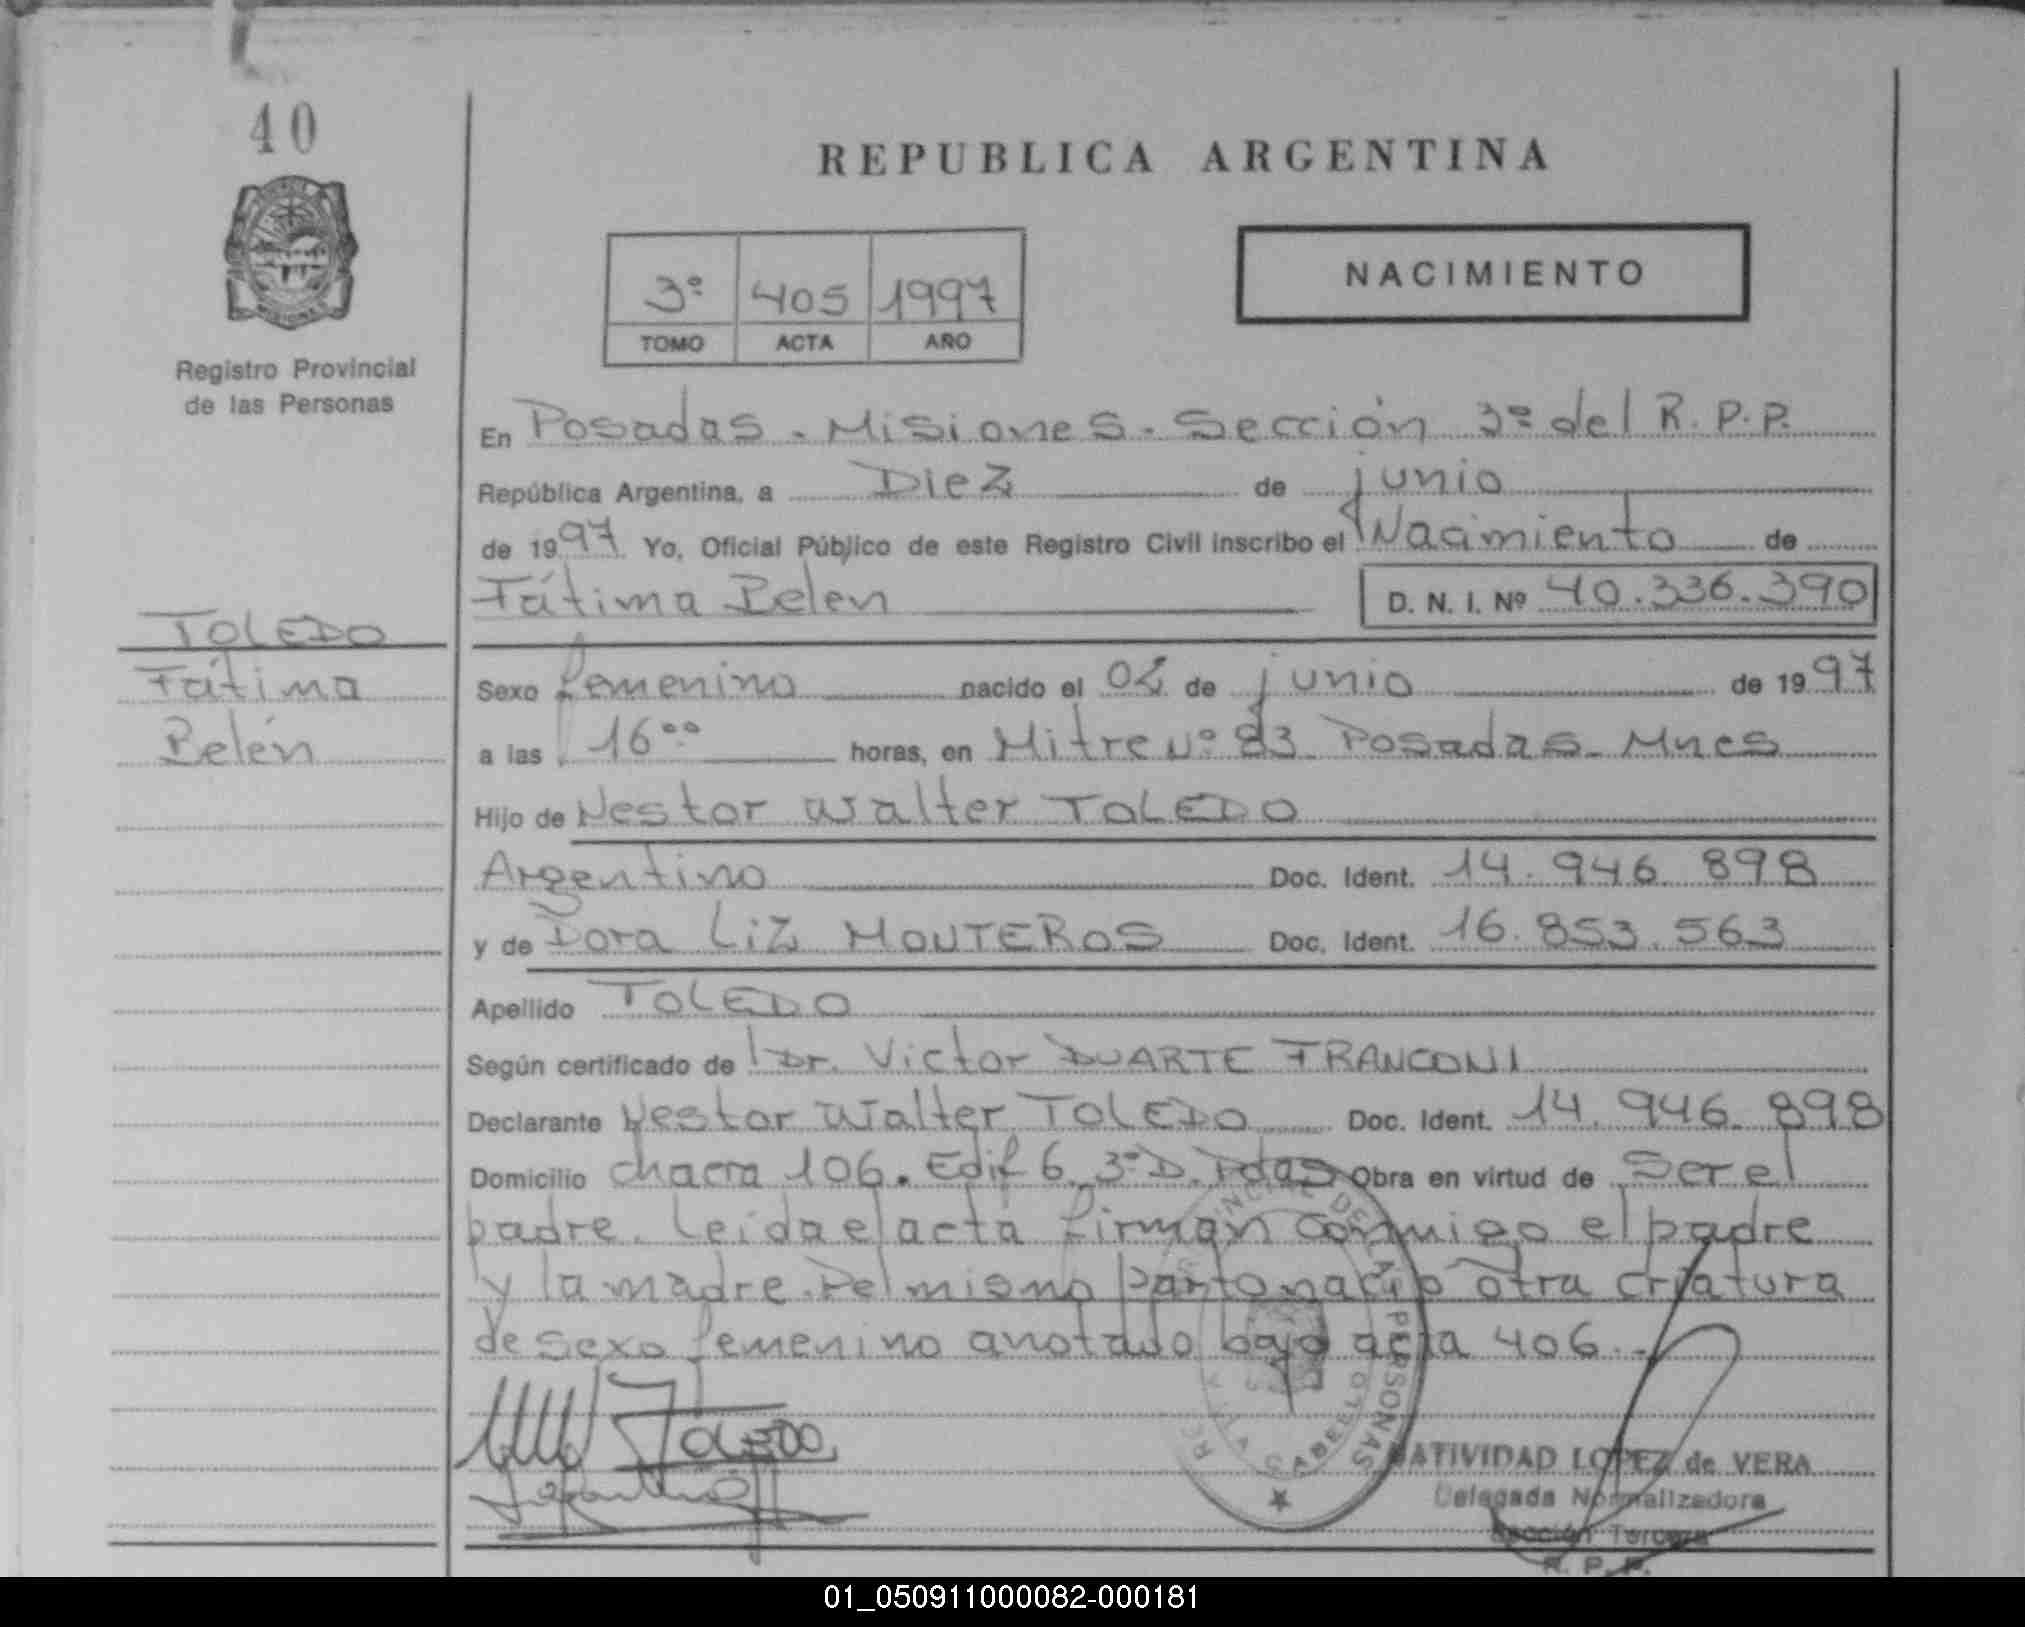 40
REPUBLICA ARGENTINA
3º 405 1997
TOMO ACTA AÑO
NACIMIENTO
Registro Provincial
de las Personas
En Posadas - Misiones - Sección 3ª del R.P.P.
República Argentina, a Diez de junio
de 1997 Yo, Oficial Público de este Registro Civil inscribo el Nacimiento de
Fátima Belen D. N. I. Nº 40.336.390
TOLEDO
Fátima
Belén
Sexo femenino nacido el 02 de junio de 1997
a las 16⁰⁰ horas, en Mitre Nº 83 Posadas - Mnes
Hijo de Nestor Walter TOLEDO
Argentino Doc. Ident. 14.946.898
y de Dora Liz MONTEROS Doc. Ident. 16.853.563
Apellido TOLEDO
Según certificado de Dr. Victor DUARTE FRANCONI
Declarante Nestor Walter TOLEDO Doc. Ident. 14.946.898
Domicilio chacra 106. Edif 6 3º D. Pdas Obra en virtud de Ser el
padre. Leida el acta firman conmigo el padre
y la madre. Del mismo parto nació otra criatura
de sexo femenino anotado bajo acta 406.-
Toledo
NATIVIDAD LOPEZ de VERA
Delegada Normalizadora
Sección Tercera
R. P. P.
01_050911000082-000181